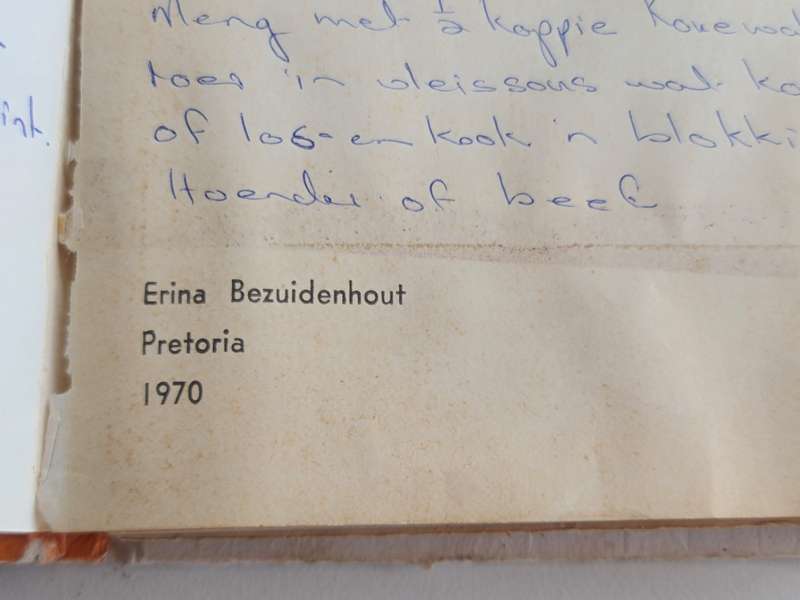 Meng met ½ koppie Kouewa
roer in vleissous wat ko
int.
of los-en kook 'n blokki
Hoender of beef
Erina Bezuidenhout
Pretoria
1970